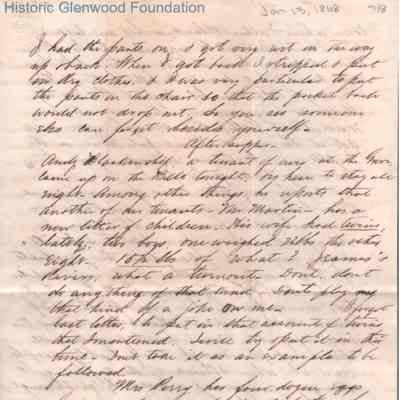 Historic Glenwood Foundation
Jan 13, 1868
I had the pants on, I got very wet on the way
up & back. When I got back I stripped & put
on dry clothes. & I was very particular to put
the pants on the chair so that the pocket book
would not drop out, So you see someone
else can forget besides yourself.
After supper.
Andy Blankenship, a tenant of ours at the Grove
came up on the Bells tonight, & is here to stay all
night. Among other things he reports that
another of our tenants - Mr Martin - has a
new litter of children. His wife had twins,
lately, two boys, one weighed 7½ lbs the other
eight. 15½ lbs of what?
Rivers, what a turnout. Don't, don't
do any thing of that kind. Don't play me
that kind of a joke on me. I forgot
last letter, to put in that account of twins
that I mentioned. I will try & put it in this
time. Don't take it as an example to be
followed.
Mrs Perry has four dozen eggs